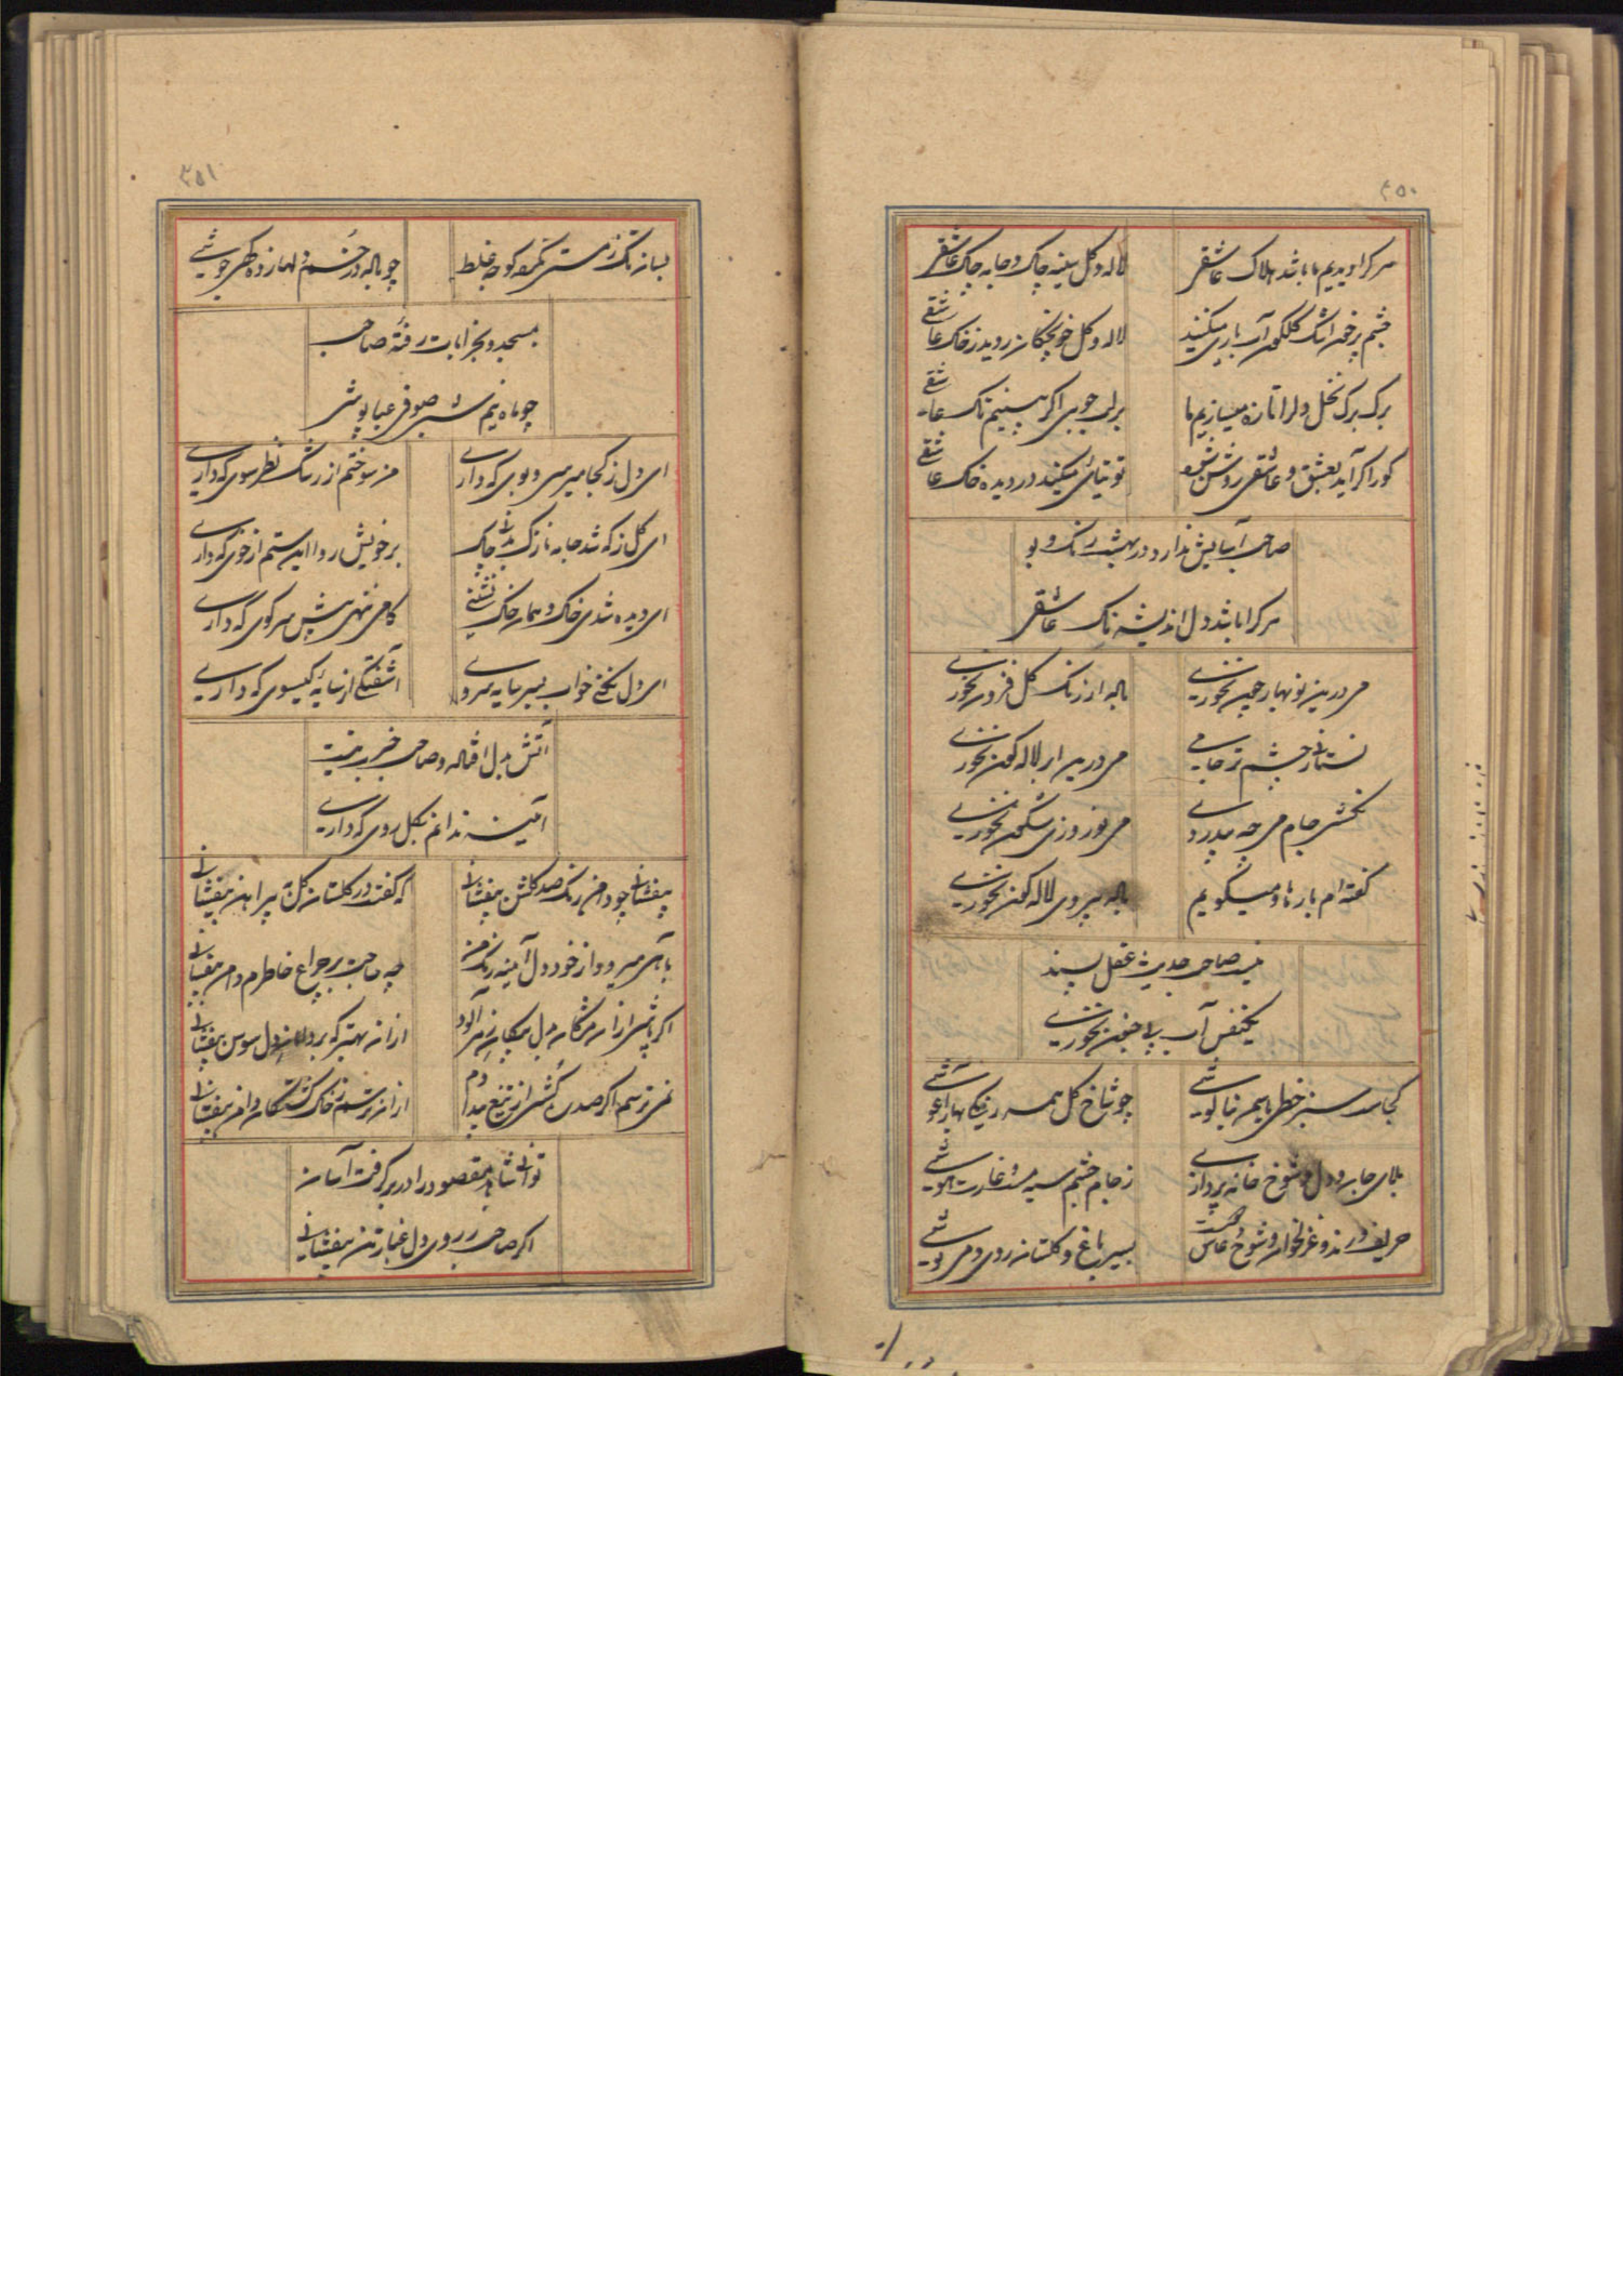 ۴۵۰
هر کرا دیدیم ما باشد هلاک عاشقی
لاله و گل سینه چاک و جامه چاک عاشقی
چشم پرخون اشک گلگون آب یاری میکنند
لاله و گل خونچکان روید ز خاک عاشقی
برک برک نخل دلرا تازه میسازیم ما
بر لب جویی اگر بینیم تاک عاشقی
کور اگر آید بعشق و عاشقی روشن شود
توتیائی میکند در دیده خاک عاشقی
صاحب آسایش ندارد در بهشت رنک و بو
هر کرا باشد دل اندیشه ناک عاشقی
می درین نوبهار چون نخوری
باله از رنک گل فزون نخوری
نستانی ز چشم تر جامی
می درین ابر لاله گون نخوری
نکشی جام می چه بیدردی
می نوروزی شگون نخوری
گفته ام بارها و میگویم
باله بیروی لاله گون نخوری
نیست صاحب حدیث عقل پسند
یکنفس آب بی جنون نخوری
کجاست سبز خطی یاسمن بناگوشی
چو شاخ گل همه رنگ بهار آغوشی
بلای جان و دل و شوخ خانه پردازی
ز جام چشم سیه مست و غارت هوشی
حریف و رند و غزلخوان و شوخ و عاشق
بسیر باغ و گلستان روی و می نوشی
۴۵۱
بسان نکهت ز مستی نکرده کوچه غلط
چو باله در خم و لها زده گهی جوشی
بمسجد و بخرابات رفته صاحب
چو ماه نیم شبی صوفی عباپوشی
ای دل ز کجا میرسی و بوی که داری
من سوختم از رشک نظر سوی که داری
ای گل ز که شد جامه نازک بدنی چاک
بر خویش روا این ستم از خوی که داری
ای دیده شدی خاک و همان خاک نشینی
گامی ننهی پیش سر کوی که داری
ای دل نکنی خواب بسر سایه سروی
آشفتگی از سایه گیسوی که داری
آتش بدل افتاده و صاحب خبرت نیست
آئینه ندانم بکل روی که داری
بیفشانی چو دامن رنک صد گلشن بیفشانی
که گفت در گلستان گل پیراهن بیفشانی
بآهی میرود از خود دل آئینه رنگ من
چه حاجت بر چراغ خاطرم دامن بیفشانی
اگر باشی از آن مژگان بدل پیکان زهرآلود
از آن بهتر که بر دامان دل سوسن بیفشانی
نمی ترسم اگر صد ره کشی از تیغ بیدادم
از آن ترسم ز خاک کشتگان دامن بیفشانی
توانی شاهد مقصود را در بر گرفت آسان
اگر صاحب ز روی دل غبار تن بیفشانی